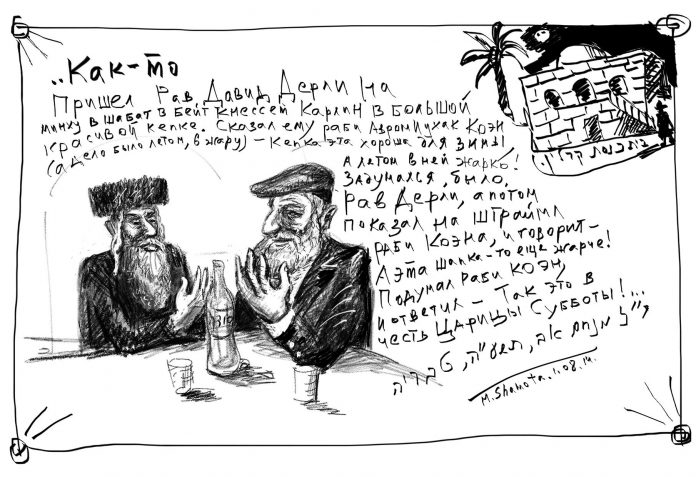 „Как-то
Пришел Рав Давид Дерли (на
минху в шабат в бейт кнессет Карлин в большой
красивой кепке. Сказал ему раби Аэрон Ицхак Коэн
(а дело было летом, в жару) – Кепка эта хороша для зимы
А летом в ней жарко!
Задумался, было,
Рав Дерли, а потом
показал на штраймл
раби Коэна, и говорит –
А эта шапка-то еще жарче!
Подумал раби Коэн,
и ответил – Так это в
честь Царицы Субботы!...
מנחם אב, טבריה
M.Shamota. 1.08.14.
בית כנסת קרלין